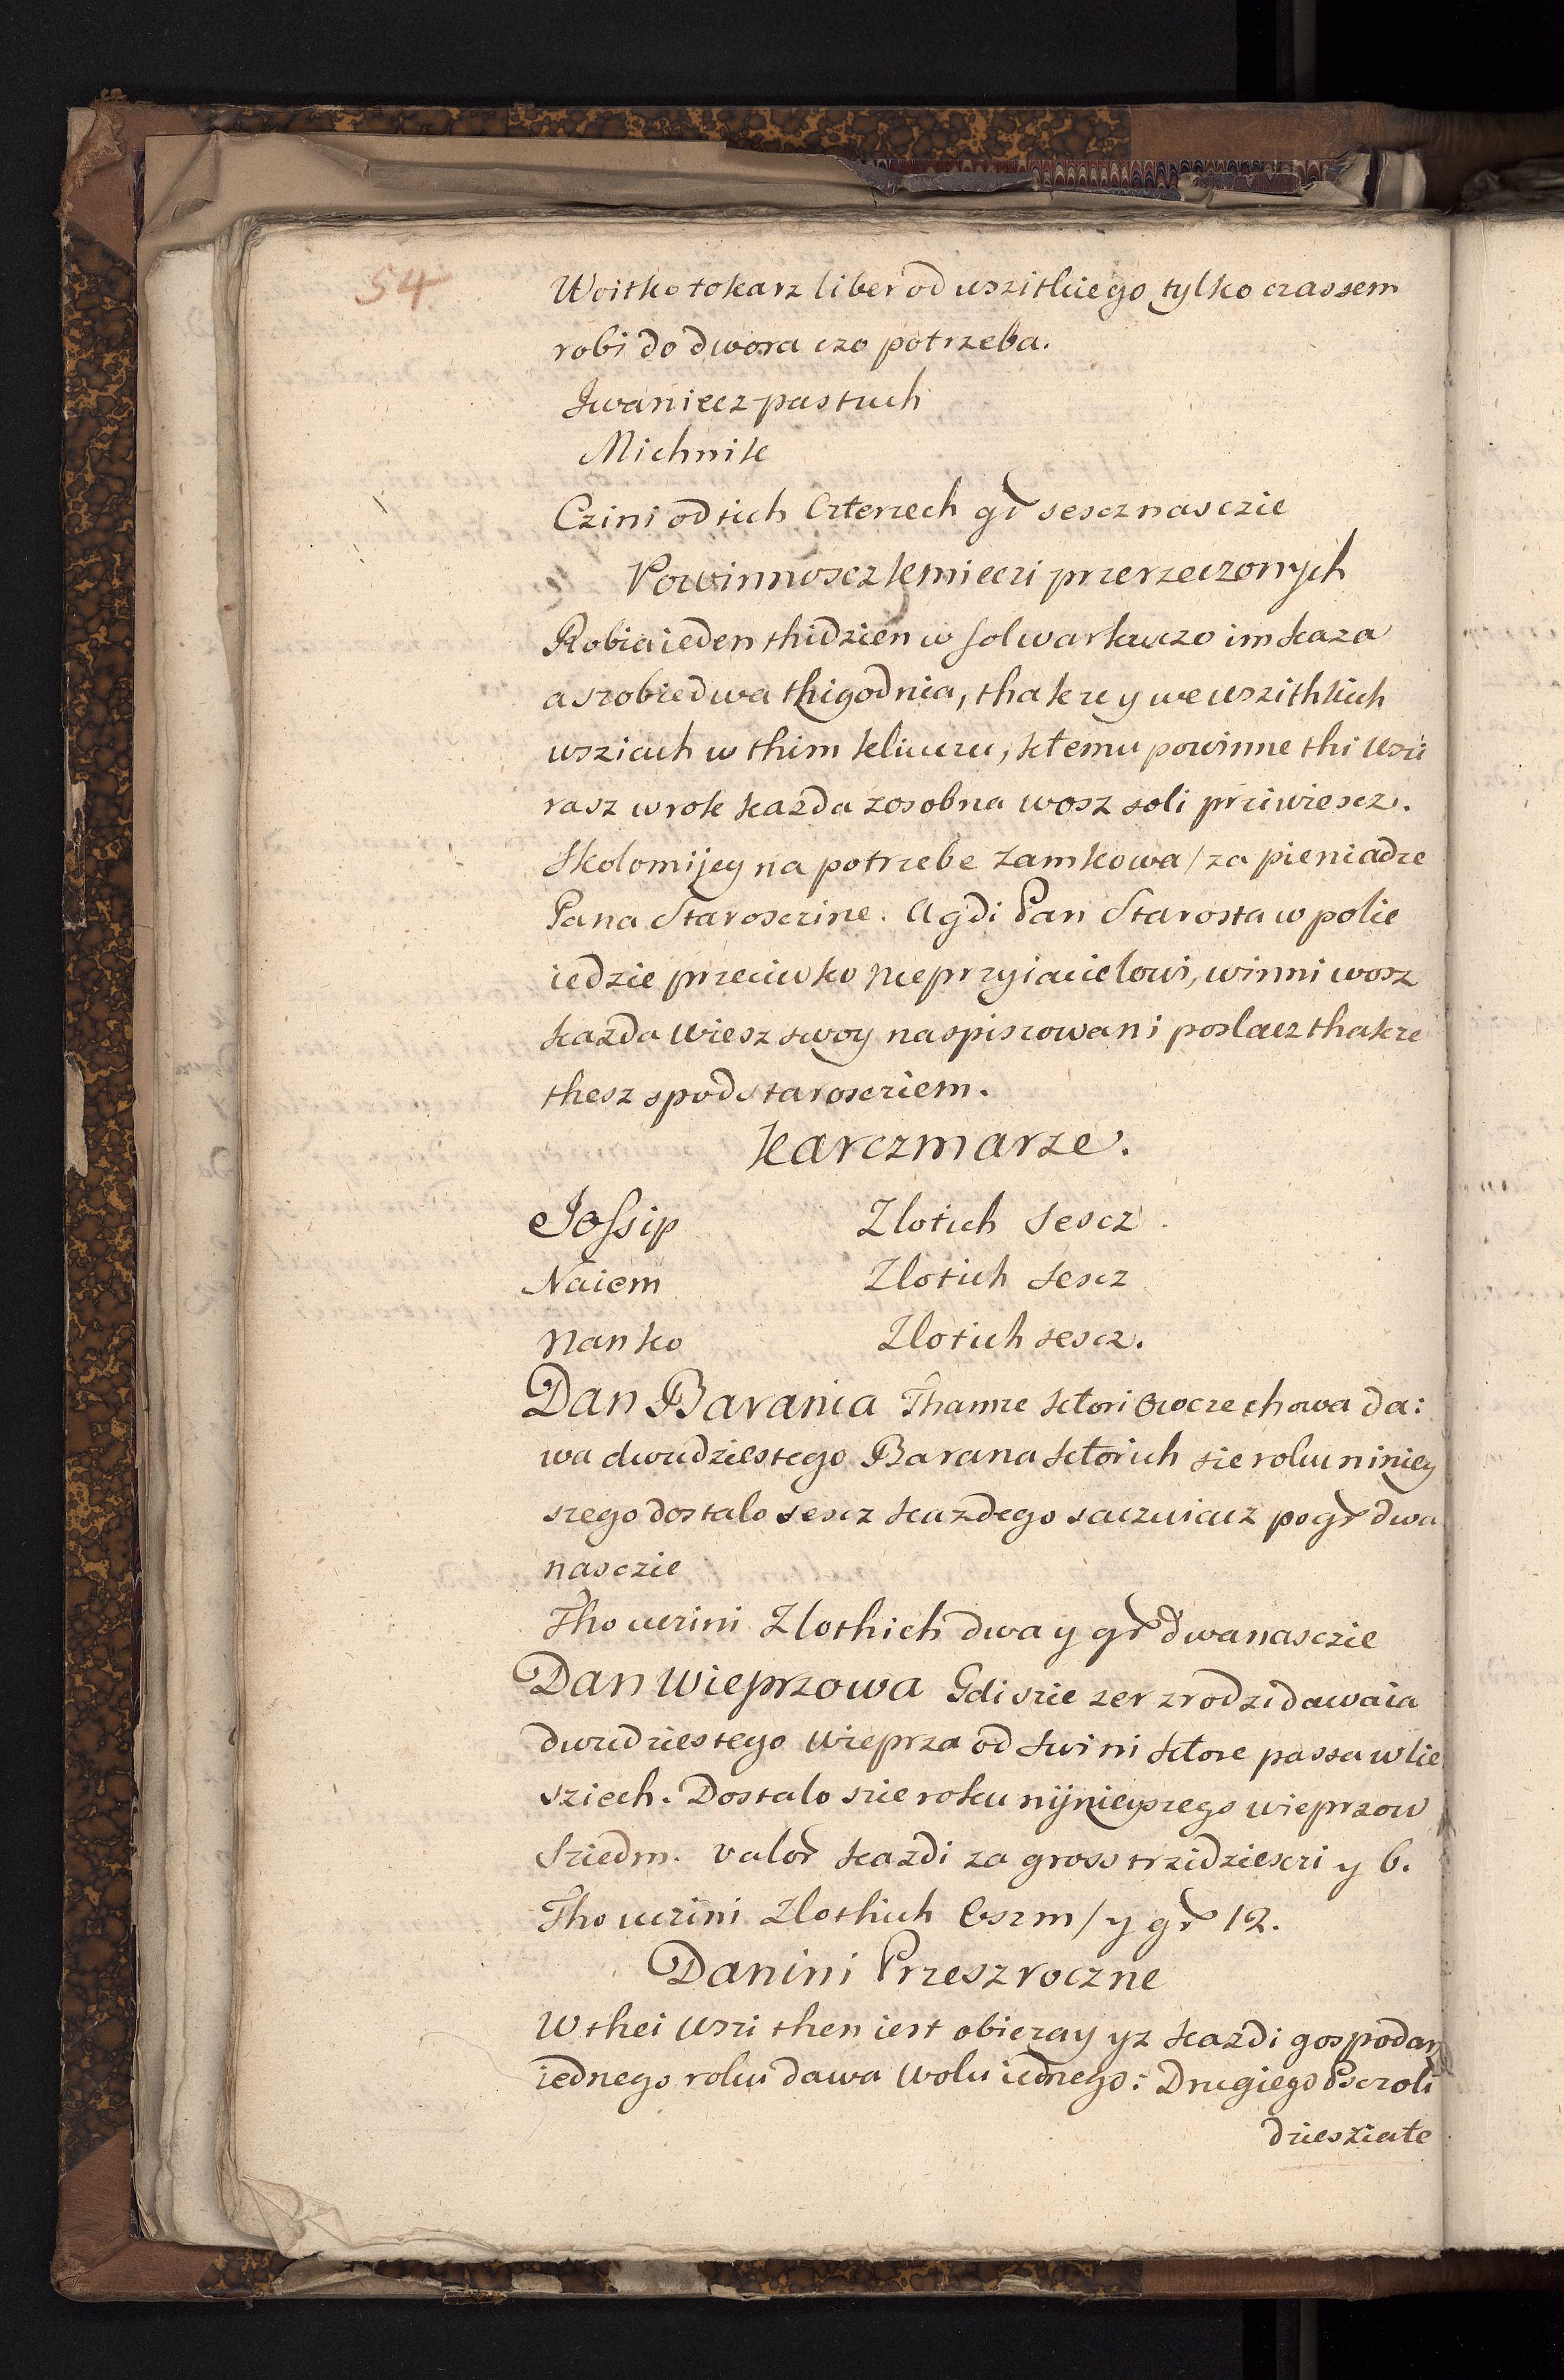 54
Woitko tokarz liber od uszitkiego tylko czassem
robi do dwora czo potrzeba.
Iwaniecz pastuch
Michnik
Czini od tich Czterzech gr sescznasczie
Powinnoscz kmieczi przerzeczonych
Robia ieden thidzien w folwarku czo im kaza
a szobie dwa thigodnia, thakze y we uszithkich
usziach w thim kliuczu, ktemu powinne thi uszi
rasz w rok kazda zosobna wosz soli prziwiescz.
Skolomijey na potrzebe zamkowa / za pieniadze
Pana Starosczine. A gdi Pan Starosta w polie
iedzie przeciwko nieprzyiacielowi, winni wosz
kazda wiesz swoy naspizowani poslacz thakze
thesz spodstarosciem.
Karczmarze.
Jossip Zlotich sescz.
Naiem Zlotich sescz
Nanko Zlotich sescz.
Dan Barania Thamze ktori Owcze chowa da:
wa dwudziestego Barana ktorich sie roku niniey
szego dostalo sescz kazdego saczuiacz po gr dwa
nasczie
Tho uczini Zlothich dwa y gr dwanasczie
Dan Wieprzowa Gdi szie zer zrodzi dawaia
dwudziestego Wieprza od swini ktore passa w lie
sziech. Dostalo szie roku nijnieyszego wieprzow
Sziedm. valor kazdi za gross trzidziesczi y 6.
Tho uczini Zlothich Oszm / y gr 12.
Danini Przeszroczne
W thei uszi then iest obiczay yz kazdi gospodarz
iednego roku dawa Wolu iednego: Drugiego Psczoli
dziesziate